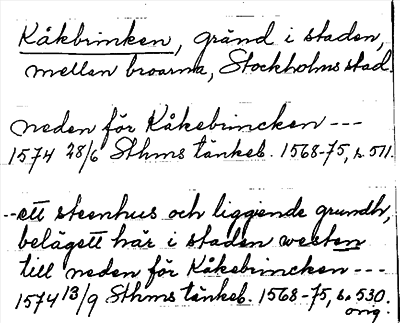 Kåkbrinken, gränd i staden,
mellan broarna, Stockholms stad.
neden för Kåkebrincken ---
1574 28/6 Sthms tänkeb. 1568-75, s. 511.
--ett steenhus och liggende grundh,
belägett här i staden westen
till neden för Kåkebrincken ---
1574 13/9 Sthms tänkeb. 1568-75, s. 530.
orig.